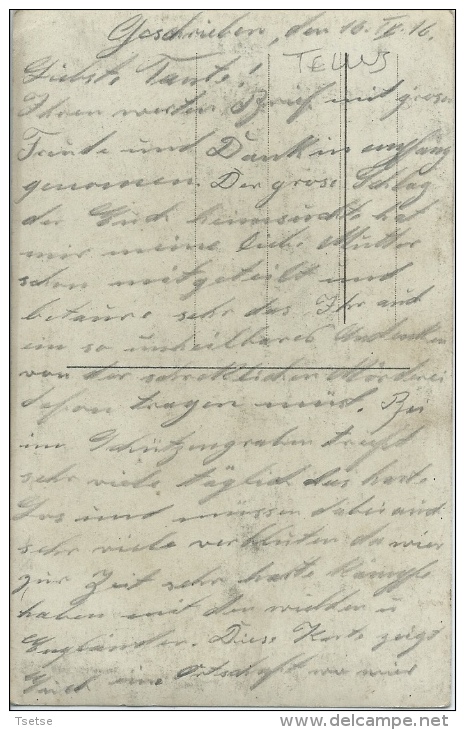 Geschrieben, den 16. IX. 16.
TELUS
Liebste Tante!
Ihren werten Brief mit groser
Freude und Dank in empfang
genomen. Der grose Schlag
der Euch heimsuchte hat
mir meine liebe Mutter
schon mitgeteilt und
betaure sehr das Ihr auch
ein so unheilbares Andenken
von der schreklichen Mörderei
dafon tragen müsd. Bei
im Schützengraben trefft
sehr viele täglich das harte
Los und müssen dabei auch
sehr viele verbluten da wier
zur Zeit sehr harte Kämpfe
haben mit den wilden
Engländer. Diese Karte zeigt
Euch eine Ortschaft wo wier
Tsetse
delcampe.net